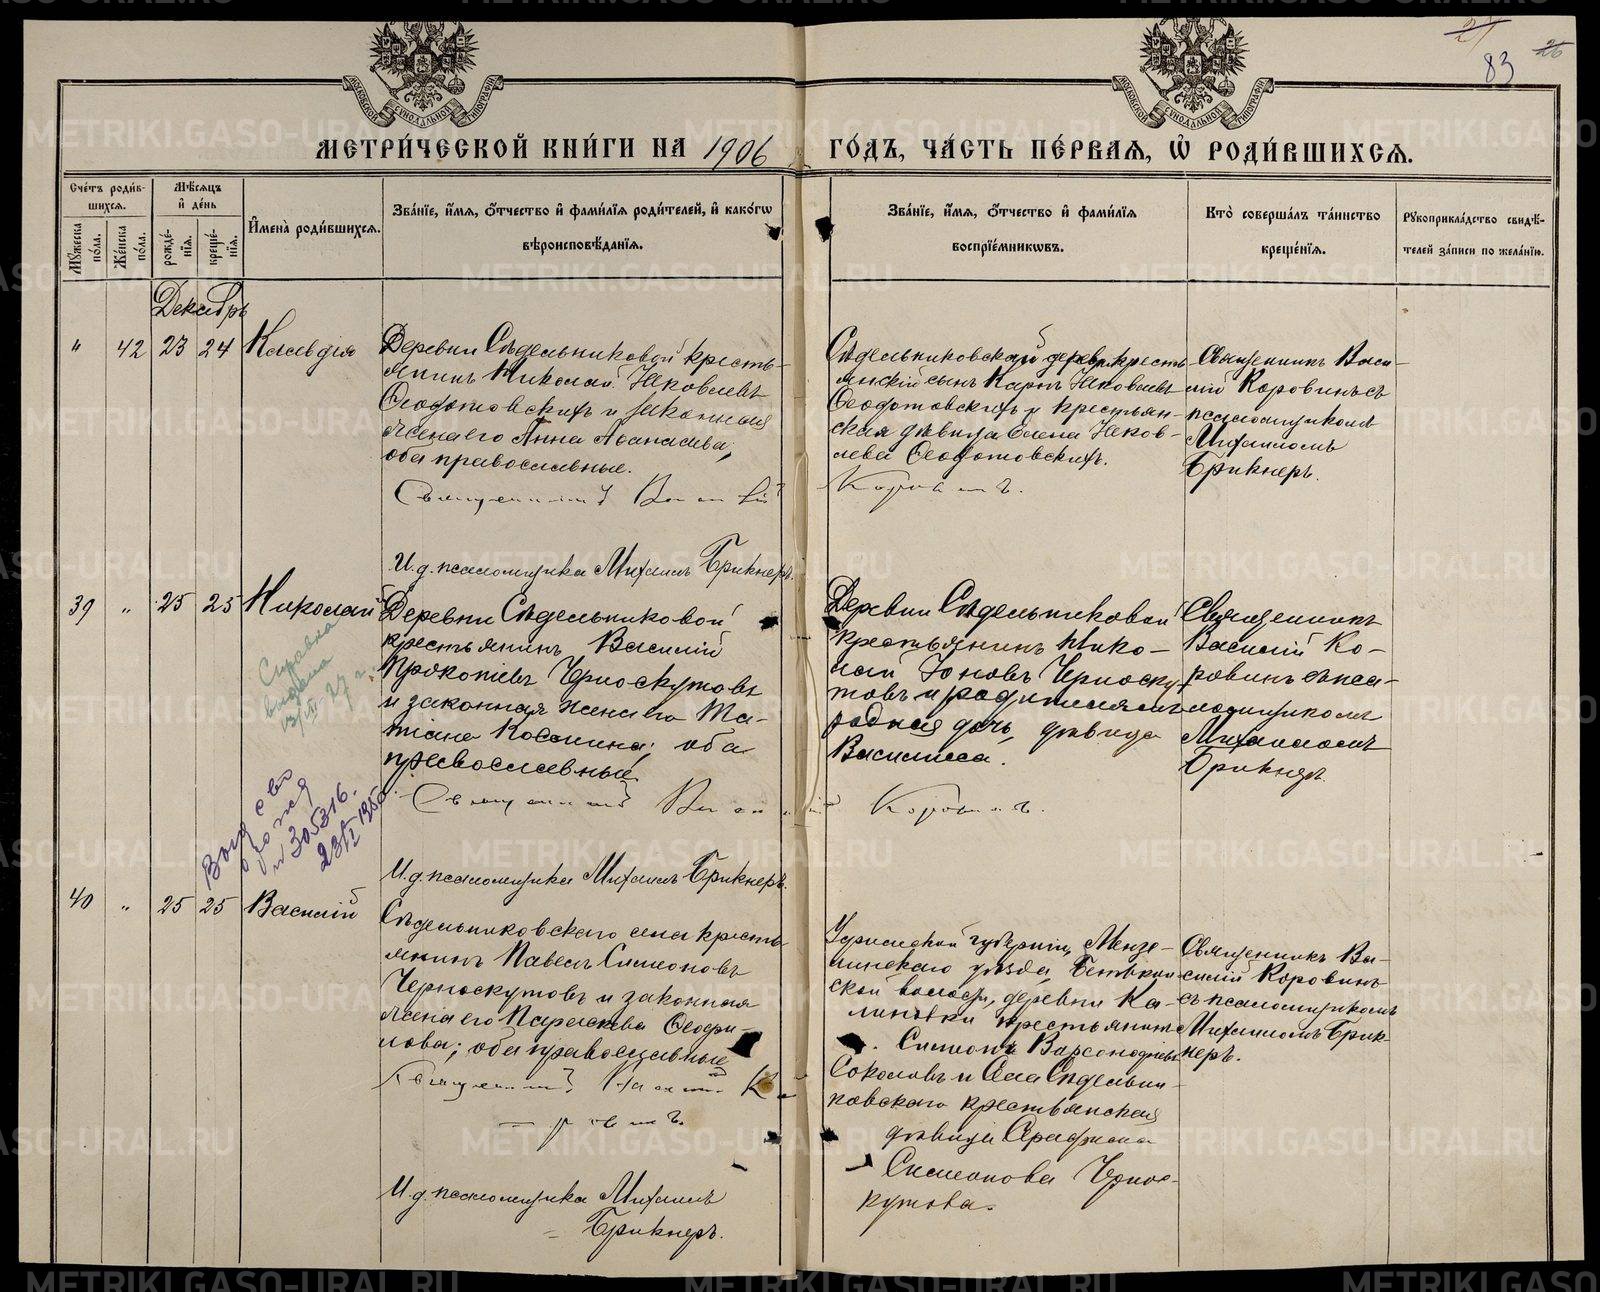 27
26
83
МОСКОВСКОЙ СѴНОДАЛЬНОЙ ТИПОГРАФІИ
МОСКОВСКОЙ СѴНОДАЛЬНОЙ ТИПОГРАФІИ
МЕТРИ́ЧЕСКОЙ КНИ́ГИ НА 1906 ГО́ДЪ, ЧА́СТЬ ПЕ́РВАѦ, Ѽ РОДИ́ВШИХСѦ.
Сче́тъ роди́в-
шихсѧ.
Мꙋ́жеска
по́ла.
Же́нска
по́ла.
Мѣ́сѧцъ
и҆ де́нь
рожде́-
нїѧ.
креще́-
нїѧ.
И҆мена̀ роди́вшихсѧ.
Зва́нїе, и҆́мѧ, ѻ҆́тчество и҆ фами́лїѧ роди́телей, и҆ како́гѡ
вѣроисповѣ́данїѧ.
Зва́нїе, и҆́мѧ, ѻ҆́тчество и҆ фами́лїѧ
воспрїе́мникѡвъ.
Кто̀ соверша́лъ та́инство
креще́нїѧ.
Рꙋкоприкла́дство свидѣ́-
телей за́писи по жела́нїю.
Декабрь
" 42 23 24 Клавдія
Деревни Сѣдельниковой кресть-
янинъ Николай Іаковлевъ
Ѳеодотовскихъ и законная
жена его Анна Аѳанасіева,
оба православные.
Священникъ Василій Коровинъ.
И. д. псаломщика Михаилъ Брикнеръ.
Сѣдельниковской дерев. кресть-
янскій сынъ Карпъ Іаковлевъ
Ѳеодотовскихъ и крестьян-
ская дѣвица Елена Іаков-
лева Ѳеодотовскихъ.
Священникъ Васи-
лій Коровинъ съ
псаломщикомъ
Михаиломъ
Брикнеръ.
39 " 25 25 Николай
Справка
выдана
27 г.
Выд. св.
о рожд.
№ 305316.
23/VI 1950
Деревни Сѣдельниковой
крестьянинъ Василій
Прокопіевъ Черноскутовъ
и законная жена его Та-
тіана Косьмина; оба
православные.
Священникъ Василій Коровинъ.
И. д. псаломщика Михаилъ Брикнеръ.
Деревни Сѣдельниковой
крестьянинъ Нико-
лай Іоновъ Черноску-
товъ и родителямъ
родная дочь, дѣвица
Василиса.
Священникъ
Василій Ко-
ровинъ съ пса-
ломщикомъ
Михаиломъ
Брикнеръ.
40 " 25 25 Василій
Сѣдельниковскаго села кресть-
янинъ Павелъ Симеоновъ
Черноскутовъ и законная
жена его Параскева Ѳеофи-
лова; оба православные.
Священникъ Василій Ко-
ровинъ.
И. д. псаломщика Михаилъ
Брикнеръ.
Уфимской губерніи, Мензе-
линскаго уѣзда, Бетьки-
ской волости, деревни Ка-
линовки крестьянинъ
Симеонъ Варсонофіевъ
Соколовъ и села Сѣдельни-
ковскаго крестьянская
дѣвица Серафима
Симеонова Черно-
скутова.
Священникъ Ва-
силій Коровинъ
съ псаломщикомъ
Михаиломъ Брик-
неръ.